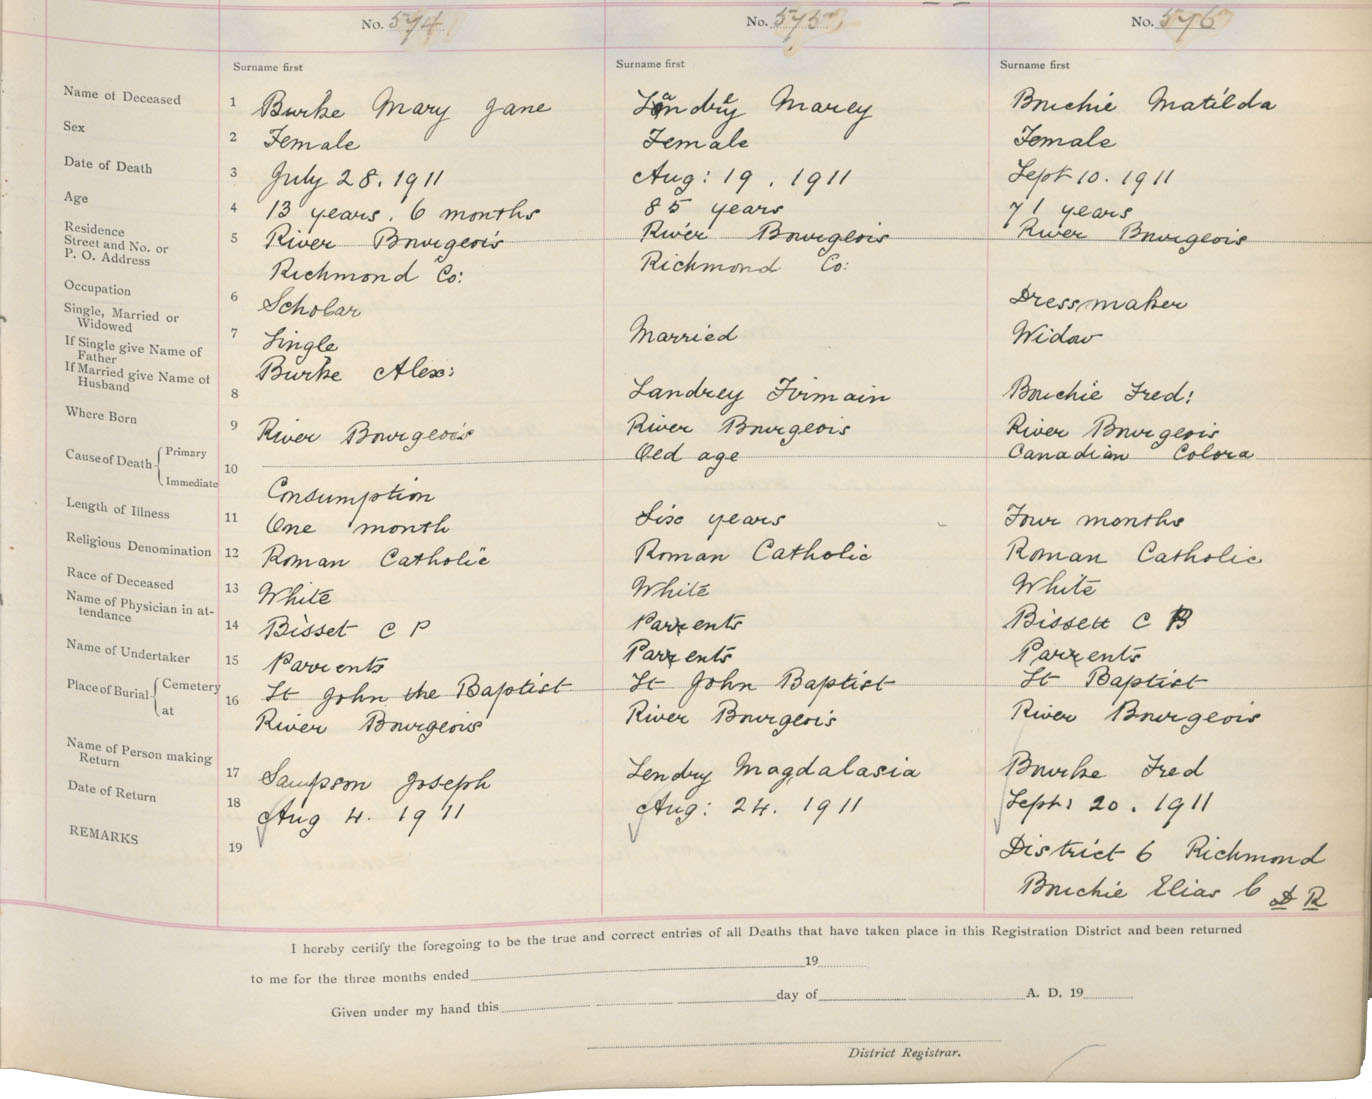 No. 574 No. 575 No. 576
Surname first Surname first Surname first
Name of Deceased 1 Burke Mary Jane Landrey Marey Bouchie Matilda
Sex 2 Female Female Female
Date of Death 3 July 28. 1911 Aug: 19. 1911 Sept 10. 1911
Age 4 13 years. 6 months 85 years 71 years
Residence
Street and No. or
P. O. Address 5 River Bourgeois River Bourgeois River Bourgeois
Richmond Co: Richmond Co:
Occupation 6 Scholar Dressmaker
Single, Married or
Widowed 7 Single Married Widow
If Single give Name of
Father Burke Alex:
If Married give Name of
Husband 8 Landrey Firmain Bouchie Fred:
Where Born 9 River Bourgeois River Bourgeois River Bourgeois
Cause of Death Primary 10 Old age Canadian Colora
Immediate Consumption
Length of Illness 11 One month Six years Four months
Religious Denomination 12 Roman Catholic Roman Catholic Roman Catholic
Race of Deceased 13 White White White
Name of Physician in at-
tendance 14 Bisset C P Parrents Bissett C B
Name of Undertaker 15 Parrents Parrents Parrents
Place of Burial Cemetery 16 St John the Baptist St John Baptist St Baptist
at River Bourgeois River Bourgeois River Bourgeois
Name of Person making
Return 17 Sampson Joseph Lendry Magdalasia Bourke Fred
Date of Return 18 Aug 4. 1911 Aug: 24. 1911 Sept: 20. 1911
REMARKS 19 District 6 Richmond
Bouchie Elias C D R
I hereby certify the foregoing to be the true and correct entries of all Deaths that have taken place in this Registration District and been returned
to me for the three months ended 19
Given under my hand this day of A. D. 19
District Registrar.